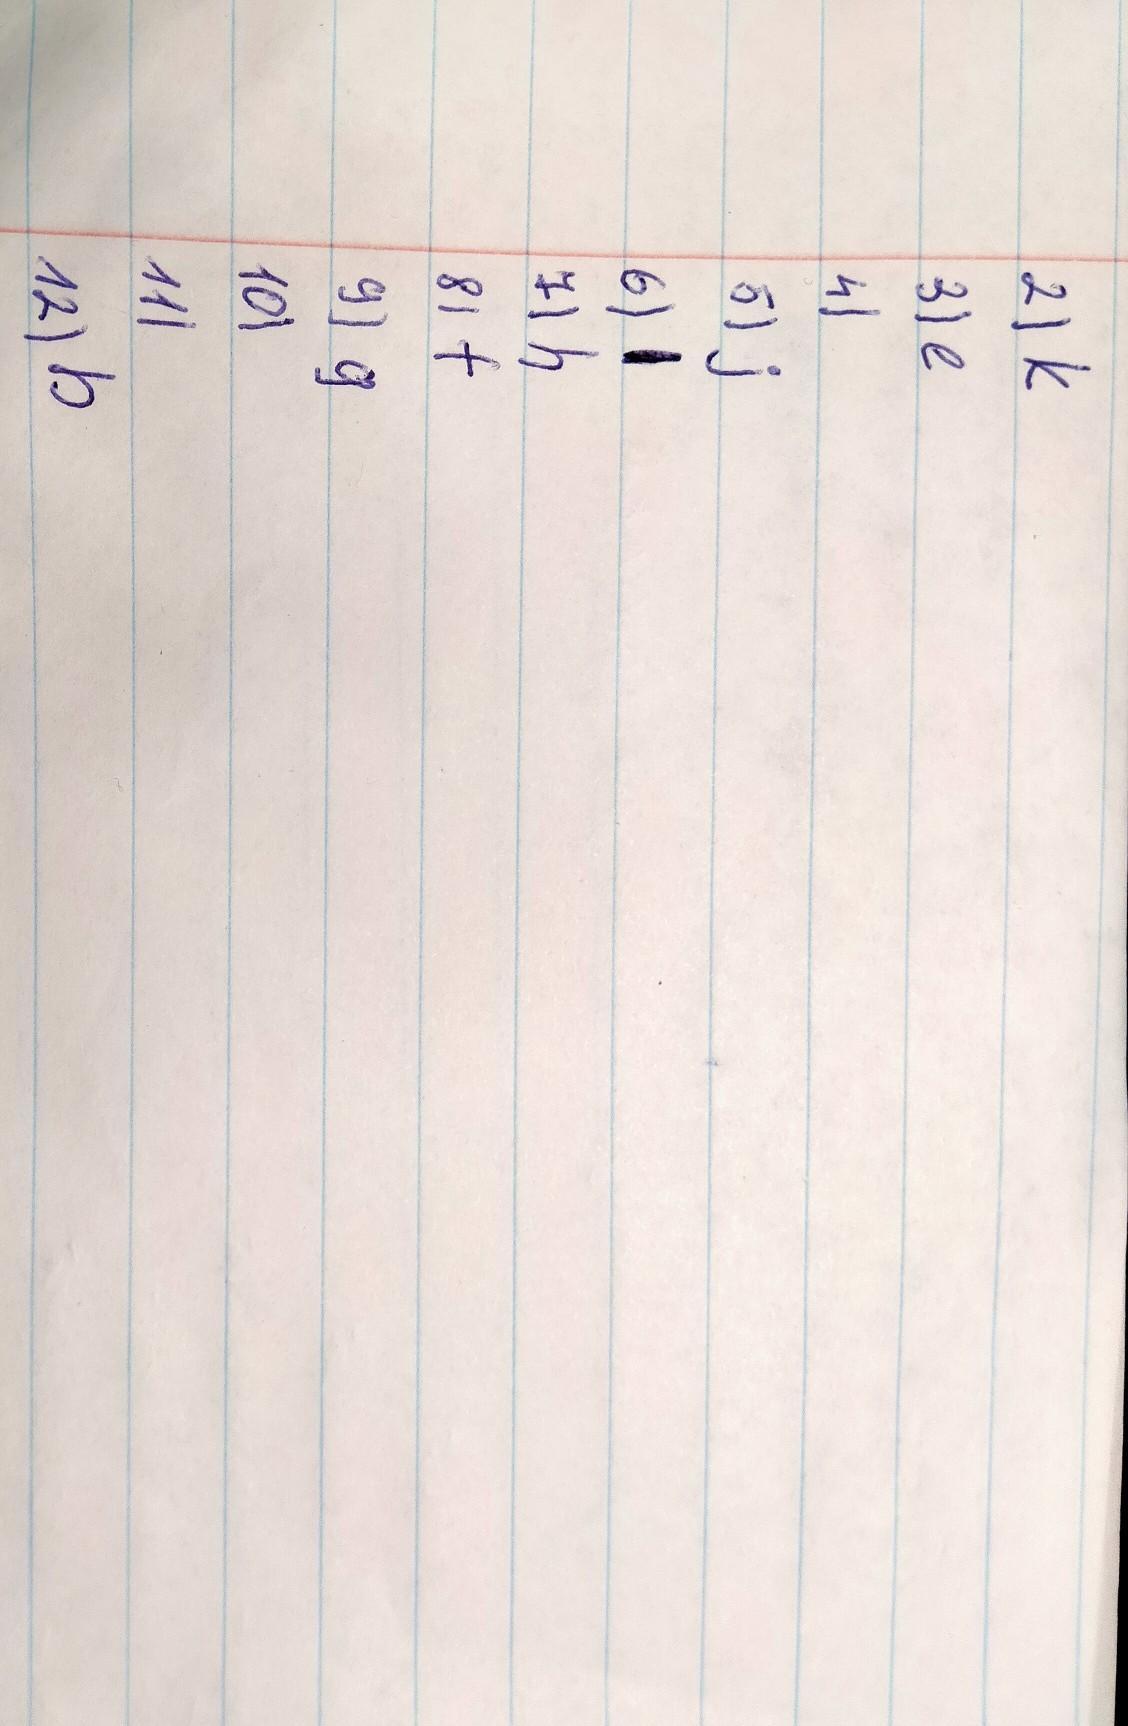 2) k
3) e
4)
5) j
6)
7) h
8) f
9) g
10)
11)
12) b